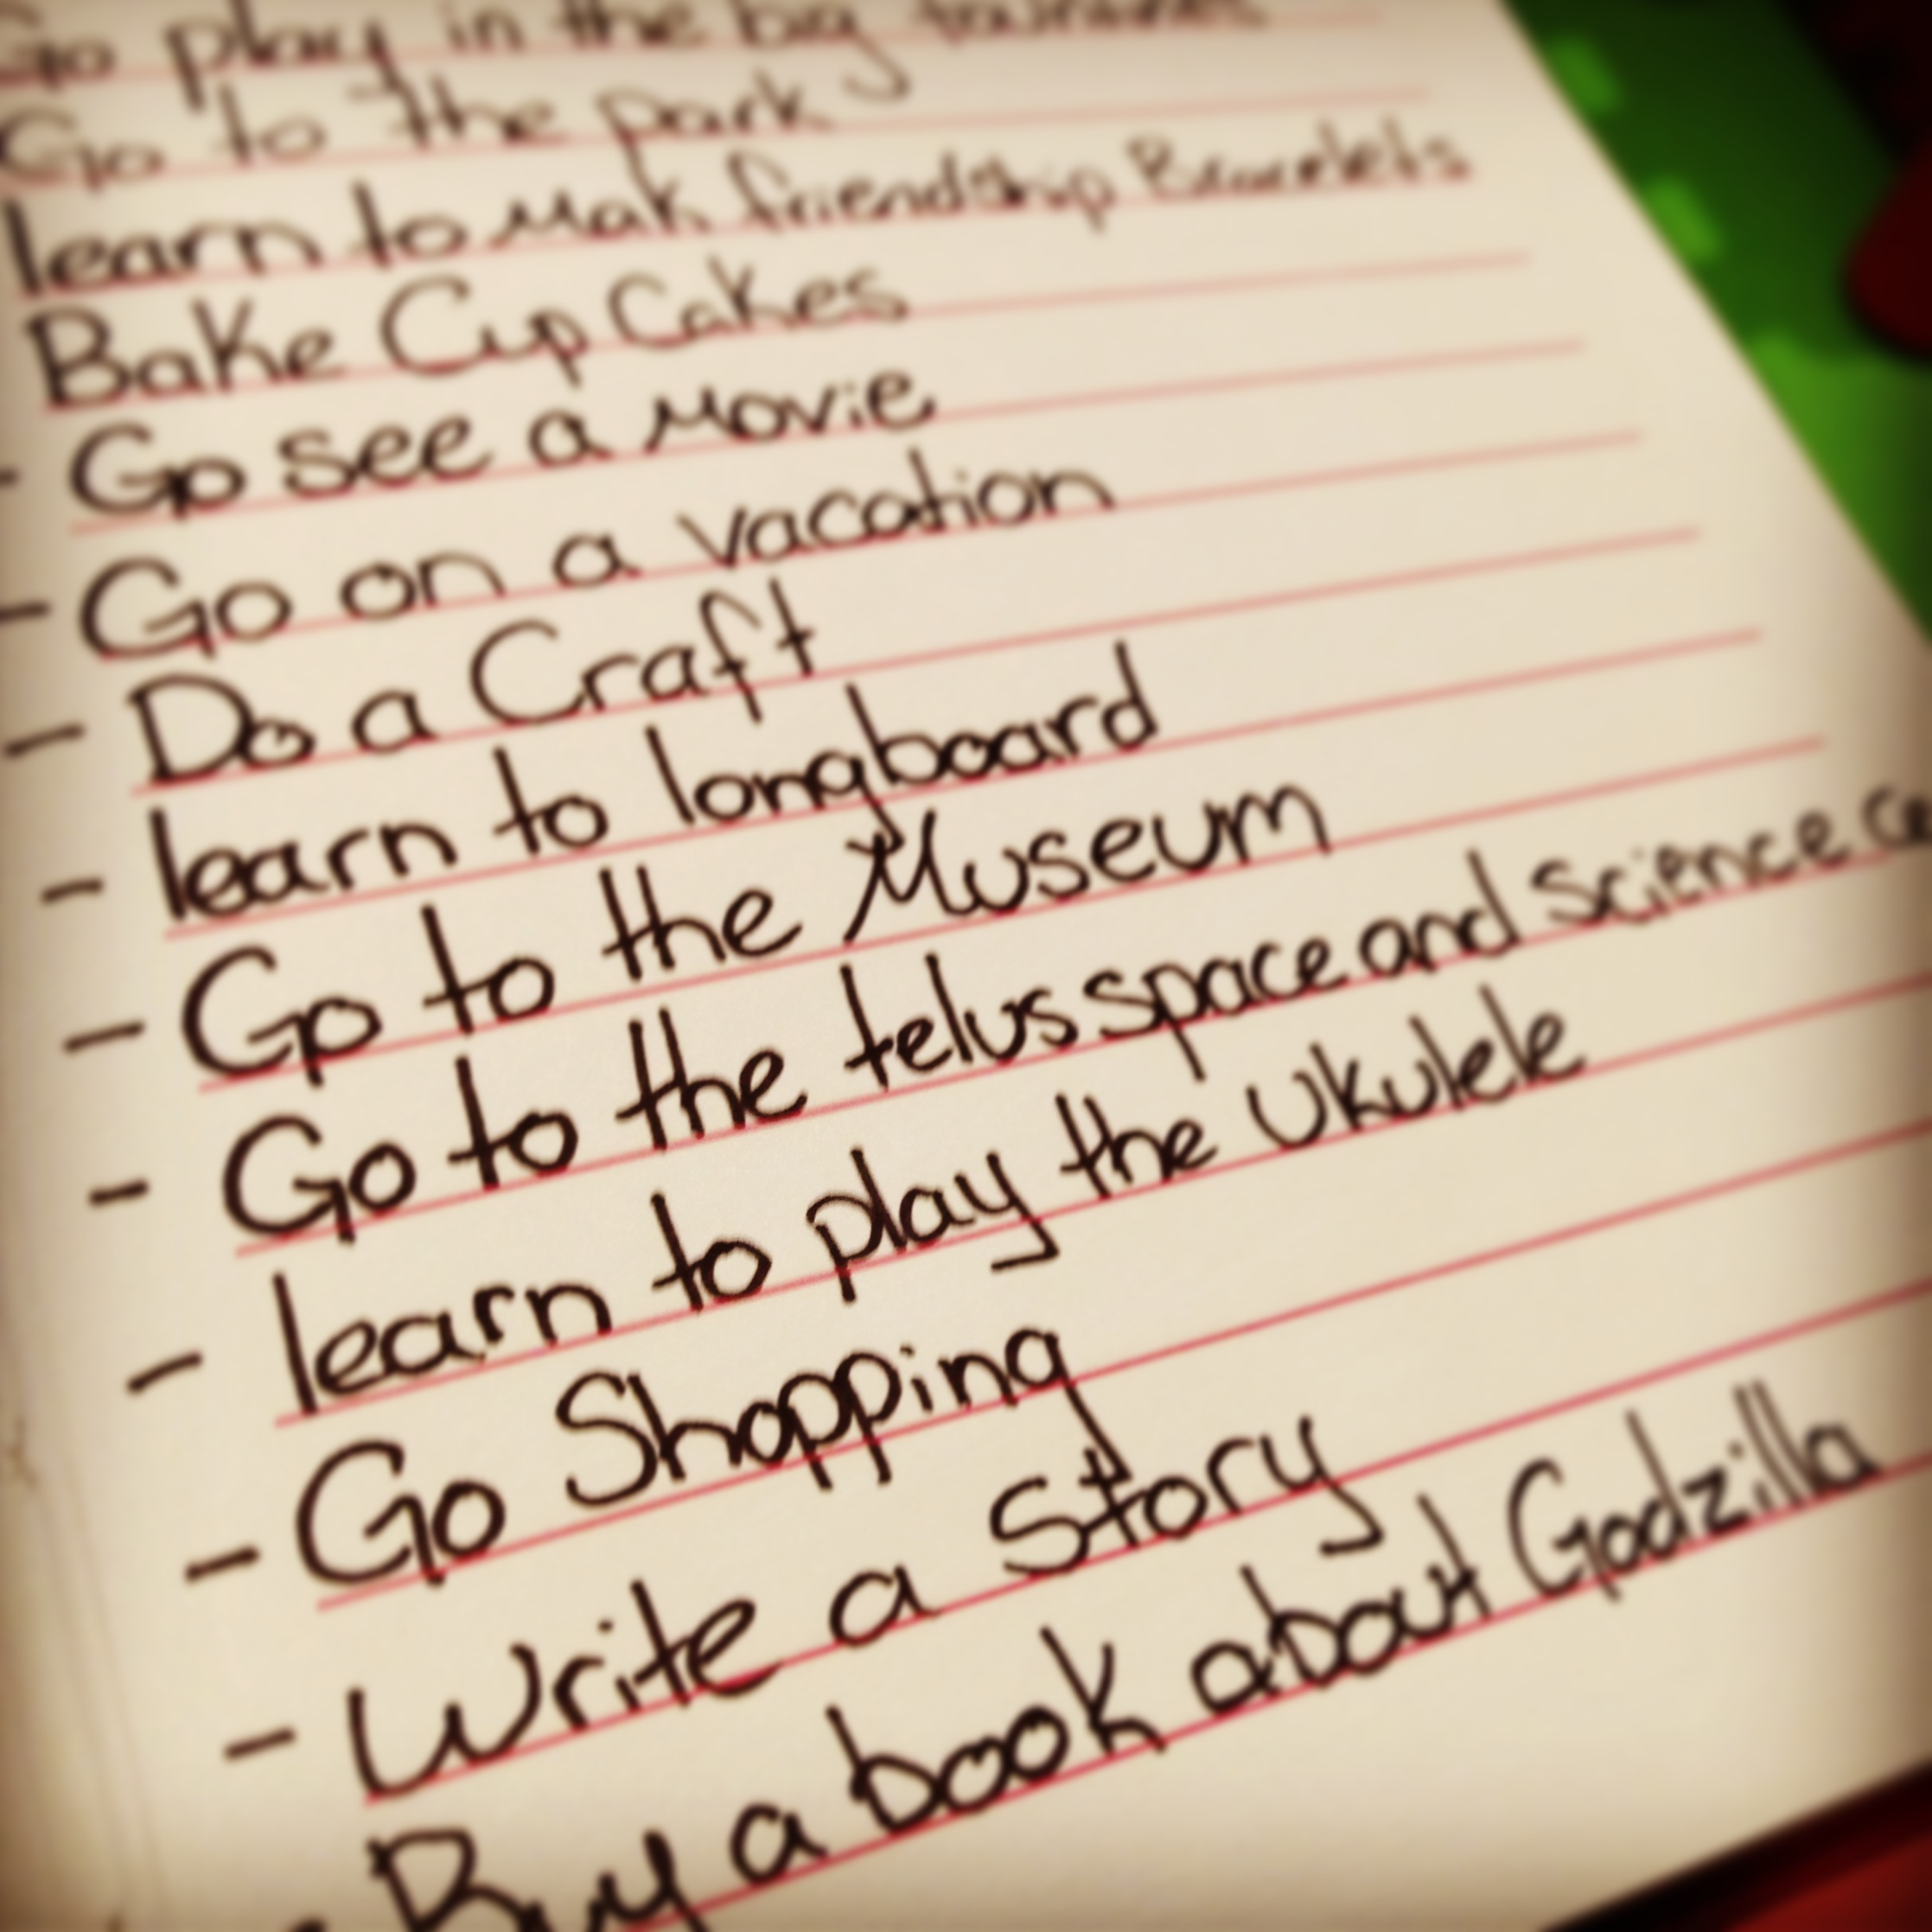 Go play in the big fountains
Go to the park
learn to Mak friendship Bracelets
Bake Cup Cakes
- Go see a Movie
- Go on a vacation
- Do a Craft
- learn to longboard
- Go to the Museum
- Go to the telus space and Science ce
- learn to play the Ukulele
- Go Shopping
- Write a Story
- Buy a book about Godzilla